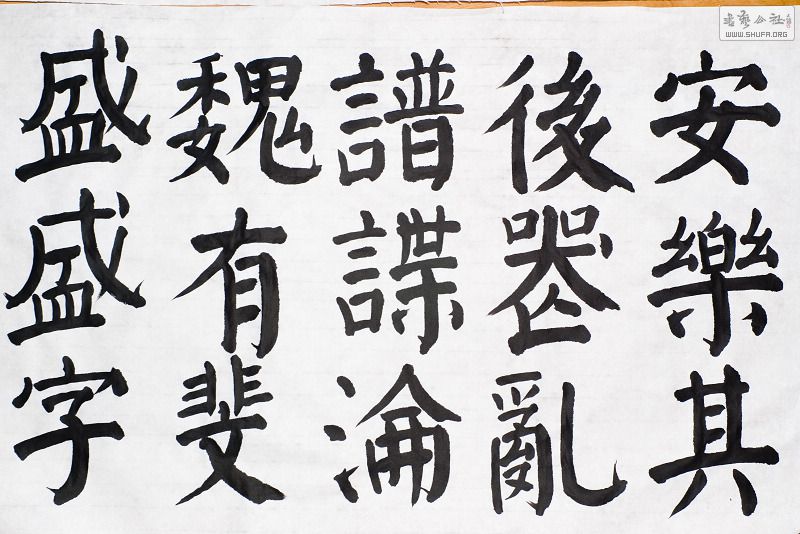 安樂其
後喪亂
譜諜淪
魏有斐
盛盛字
書藝公社
WWW.SHUFA.ORG